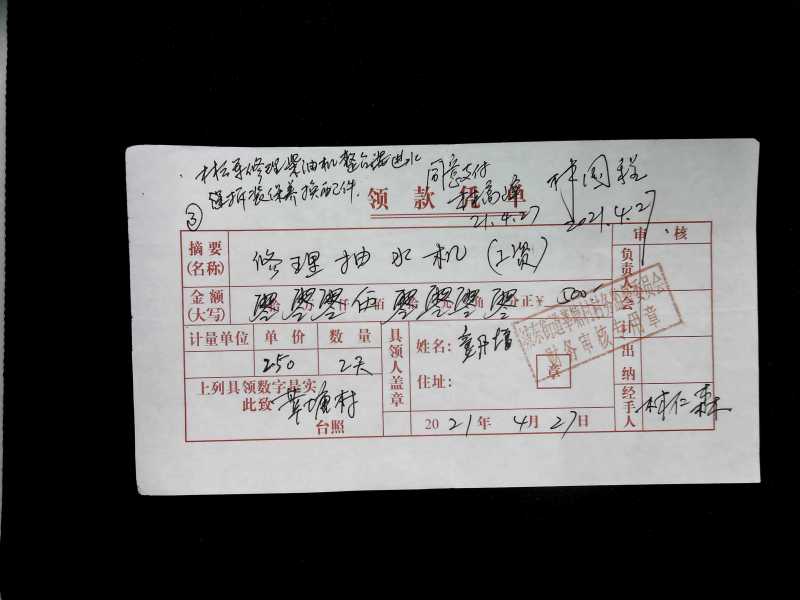 修理柴油机
拆装保养换配件.
同意支付
21.4.27
2021.4.27
③
领款凭单
摘要
(名称)
修理抽水机(工资)
审核
负责人
金额
(大写)
零零零伍零零零零
仟佰
角分正¥ 500-
会计
计量单位 单价 数量
250 2天
具领人盖章
姓名:
住址:
章
财务审核专用章
出纳
上列具领数字是实
此致 章塘村
台照
2021年4月27日
经手人
林仁森